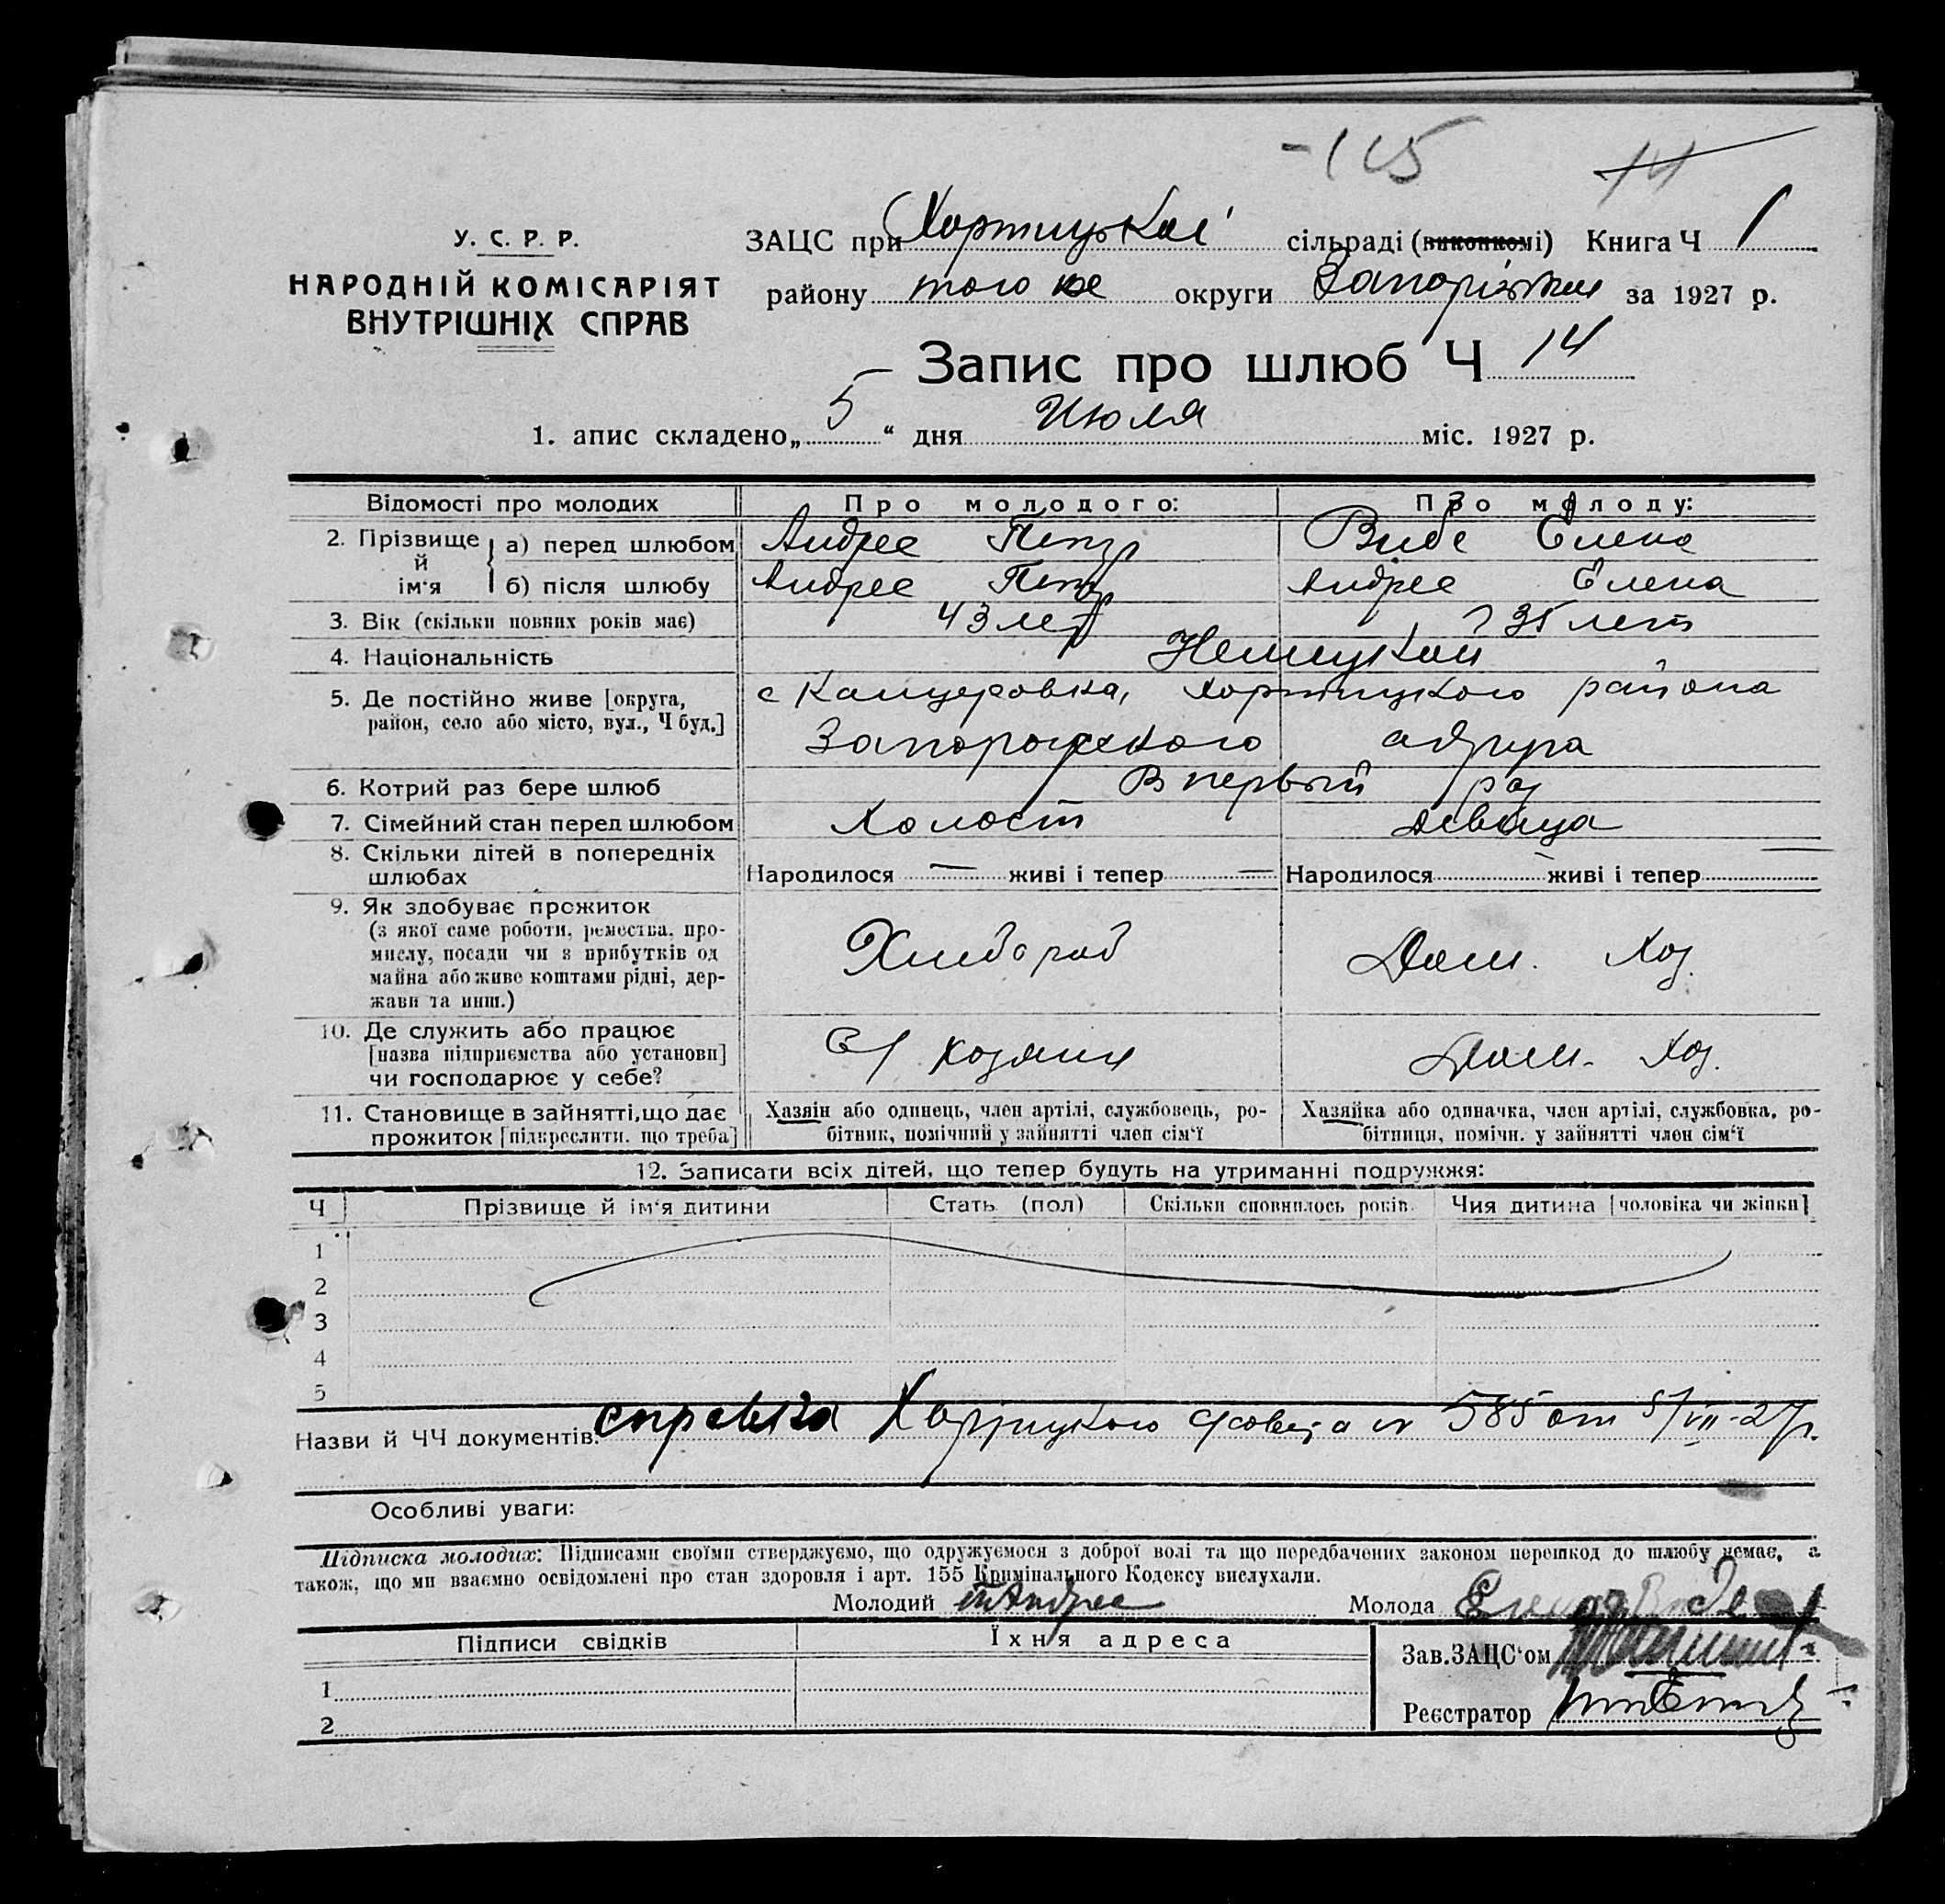 -115 14
У. С. Р. Р.
НАРОДНІЙ КОМІСАРІЯТ
ВНУТРІШНІХ СПРАВ
ЗАЦС при Хортицької сільраді (виконкомі) Книга Ч 1
району того же округи Запоріжжя за 1927 р.
Запис про шлюб Ч 14
1. апис складено „5“ дня Июля міс. 1927 р.
Відомості про молодих Про молодого: Про молоду:
2. Прізвище й ім‘я а) перед шлюбом Андрес Петр Вибе Елена
б) після шлюбу Андрес Петр Андрес Елена
3. Вік (скільки повних років має) 43 лет 35 лет
4. Національність Немецкой
5. Де постійно живе [округа, район, село або місто, вул., Ч буд.] с Канцеровка, Хортицкого района
Запорожского округа
6. Котрий раз бере шлюб В первый раз
7. Сімейний стан перед шлюбом Холост девица
8. Скільки дітей в попередніх шлюбах Народилося — живі і тепер — Народилося — живі і тепер —
9. Як здобуває прожиток
(з якої саме роботи, ремества, про-
мислу, посади чи з прибутків од
майна або живе коштами рідні, дер-
жави та инш.) Хлебороб Дом. Хоз.
10. Де служить або працює
[назва підприємства або установи]
чи господарює у себе? С/ хозяин Дом. Хоз.
11. Становище в зайнятті, що дає
прожиток [підкреслити. що треба]
Хазяін або одинець, член артілі, службовець, ро-
бітник, помічний у зайнятті член сім‘ї
Хазяйка або одиначка, член артілі, службовка, ро-
бітниця, помічн. у зайнятті член сім‘ї
12. Записати всіх дітей, що тепер будуть на утриманні подружжя:
Ч Прізвище й ім‘я дитини Стать (пол) Скільки сповнилось років. Чия дитина [чоловіка чи жінки]
1
2
3
4
5
Назви й ЧЧ документів: справка Хортицкого с/совета № 585 от 5/VII-27р.
Особливі уваги:
Підписка молодих: Підписами своїми стверджуємо, що одружуємося з доброї волі та що передбачених законом перешкод до шлюбу немає, а
також, що ми взаємно освідомлені про стан здоровля і арт. 155 Кримінального Кодексу вислухали.
Молодий Андрес Молода Елена Вибе
Підписи свідків Їхня адреса
Зав. ЗАЦС‘ом
1
Реєстратор
2